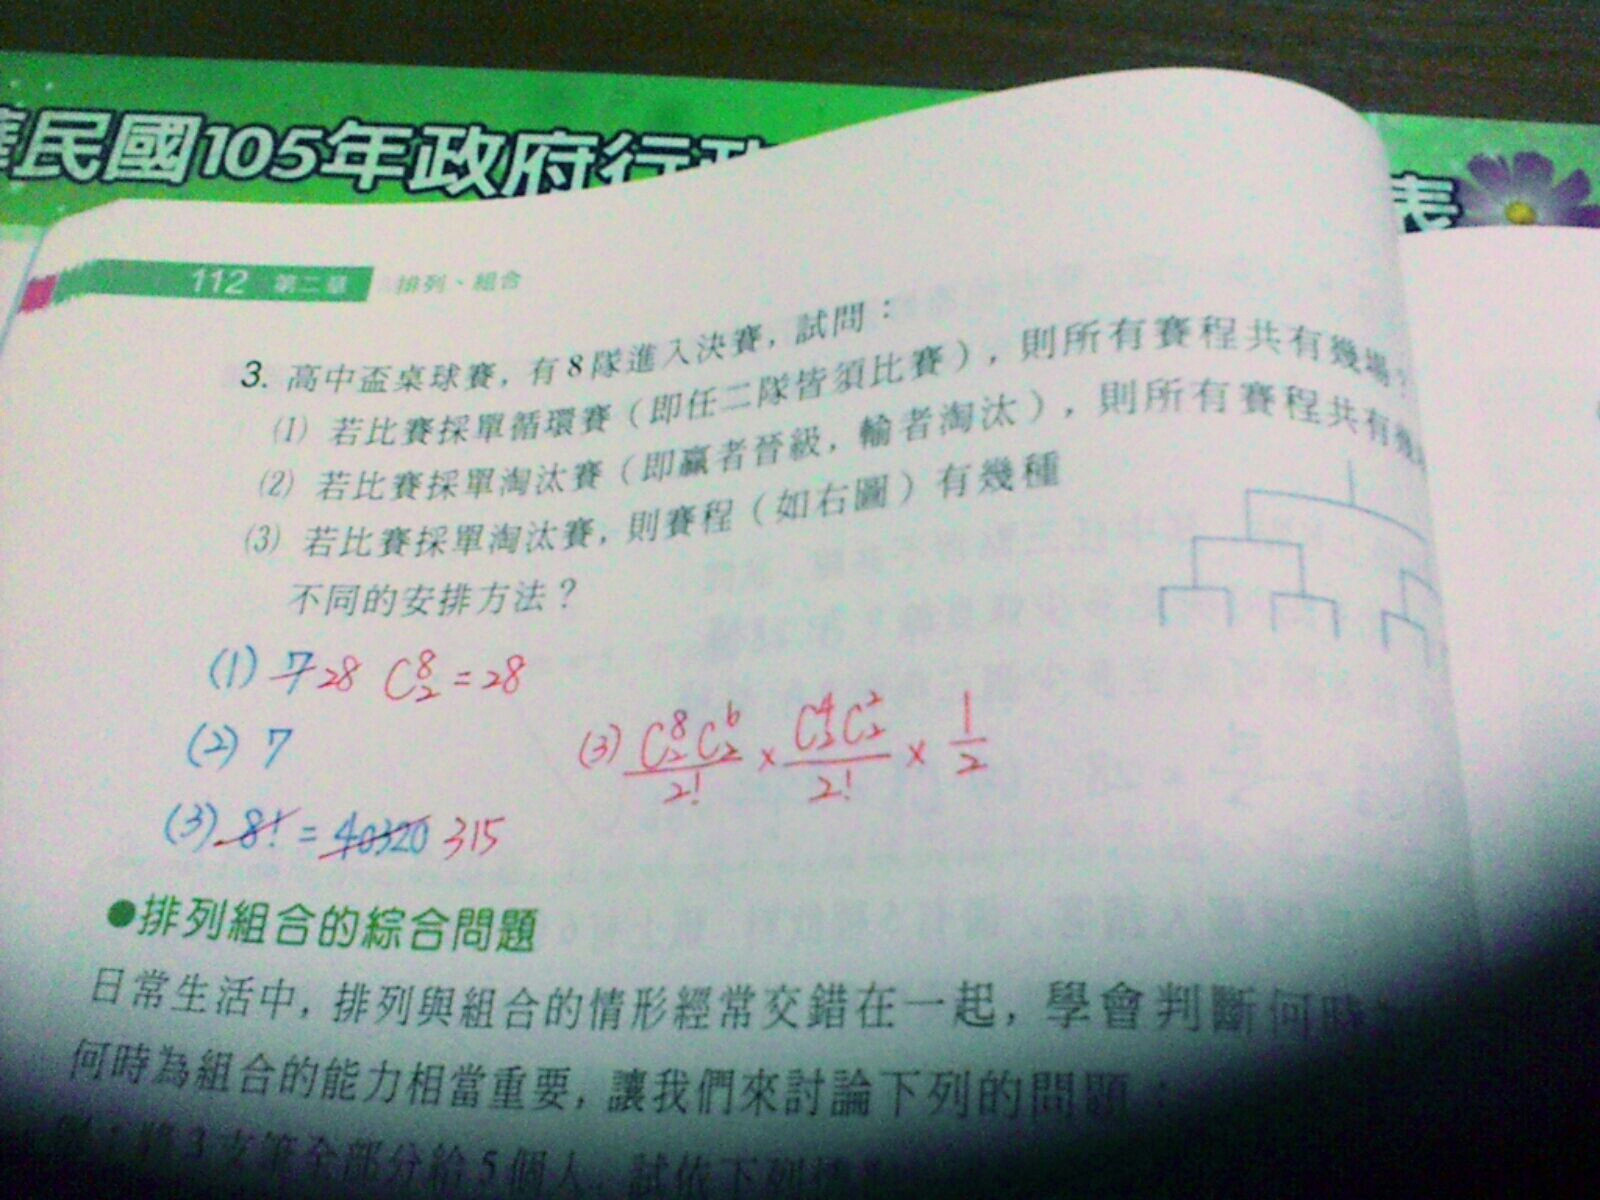 民國105年政府行政
表
112 第二章 排列、組合
3. 高中盃桌球賽，有8隊進入決賽，試問：
(1) 若比賽採單循環賽（即任二隊皆須比賽），則所有賽程共有幾場？
(2) 若比賽採單淘汰賽（即贏者晉級，輸者淘汰），則所有賽程共有幾
(3) 若比賽採單淘汰賽，則賽程（如右圖）有幾種
不同的安排方法？
(1) 7 28 C⁸₂ = 28
(2) 7
(3) 8! = 40320 315
(3) C⁸₂C⁶₂/2! × C⁴₂C²₂/2! × 1/2
●排列組合的綜合問題
日常生活中，排列與組合的情形經常交錯在一起，學會判斷何時
何時為組合的能力相當重要，讓我們來討論下列的問題：
將3支筆全部分給5個人，試依下列